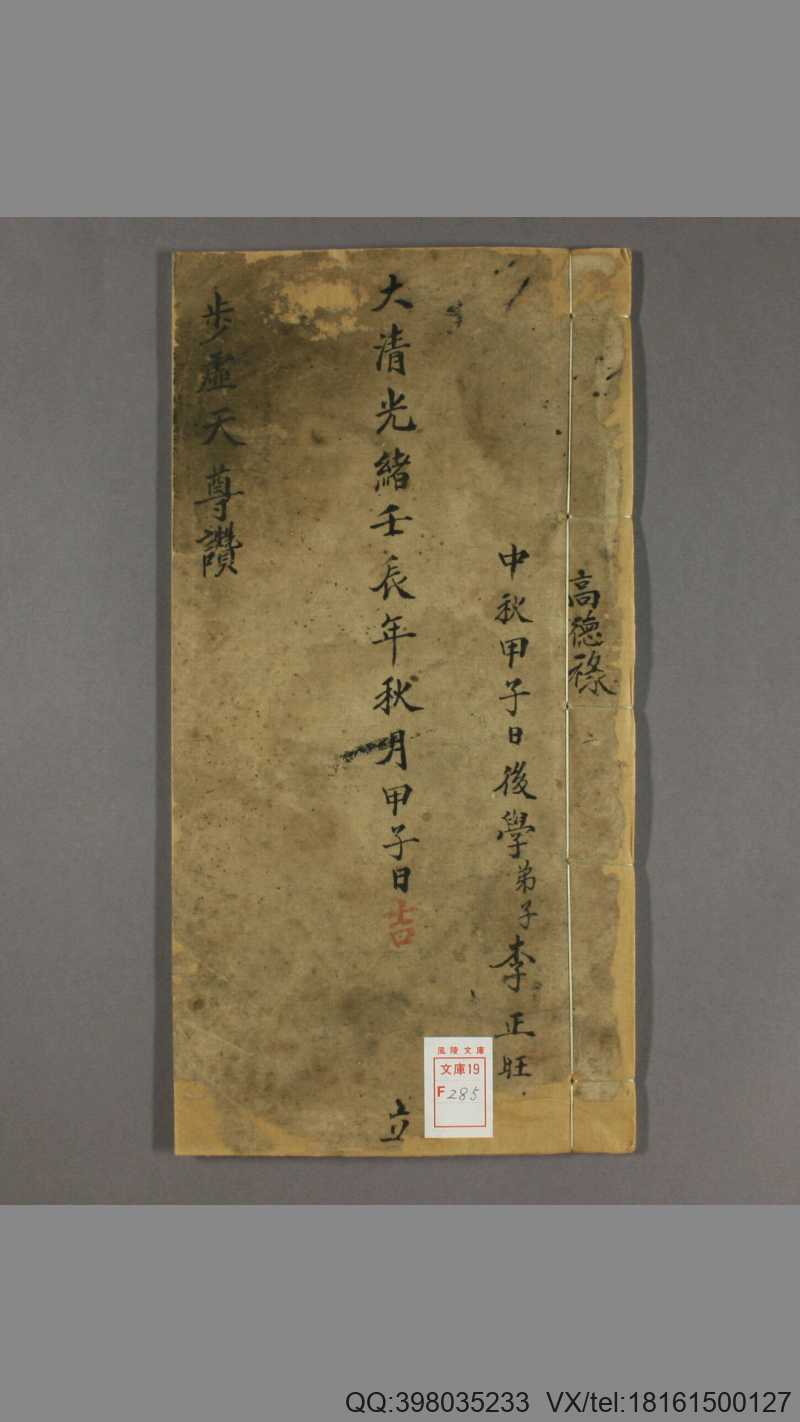 高德祿
中秋甲子日後學弟子李正旺
大清光緒壬辰年秋月甲子日吉立
步虛天尊讚
風陵文庫
文庫19
F285
QQ:398035233 VX/tel:18161500127